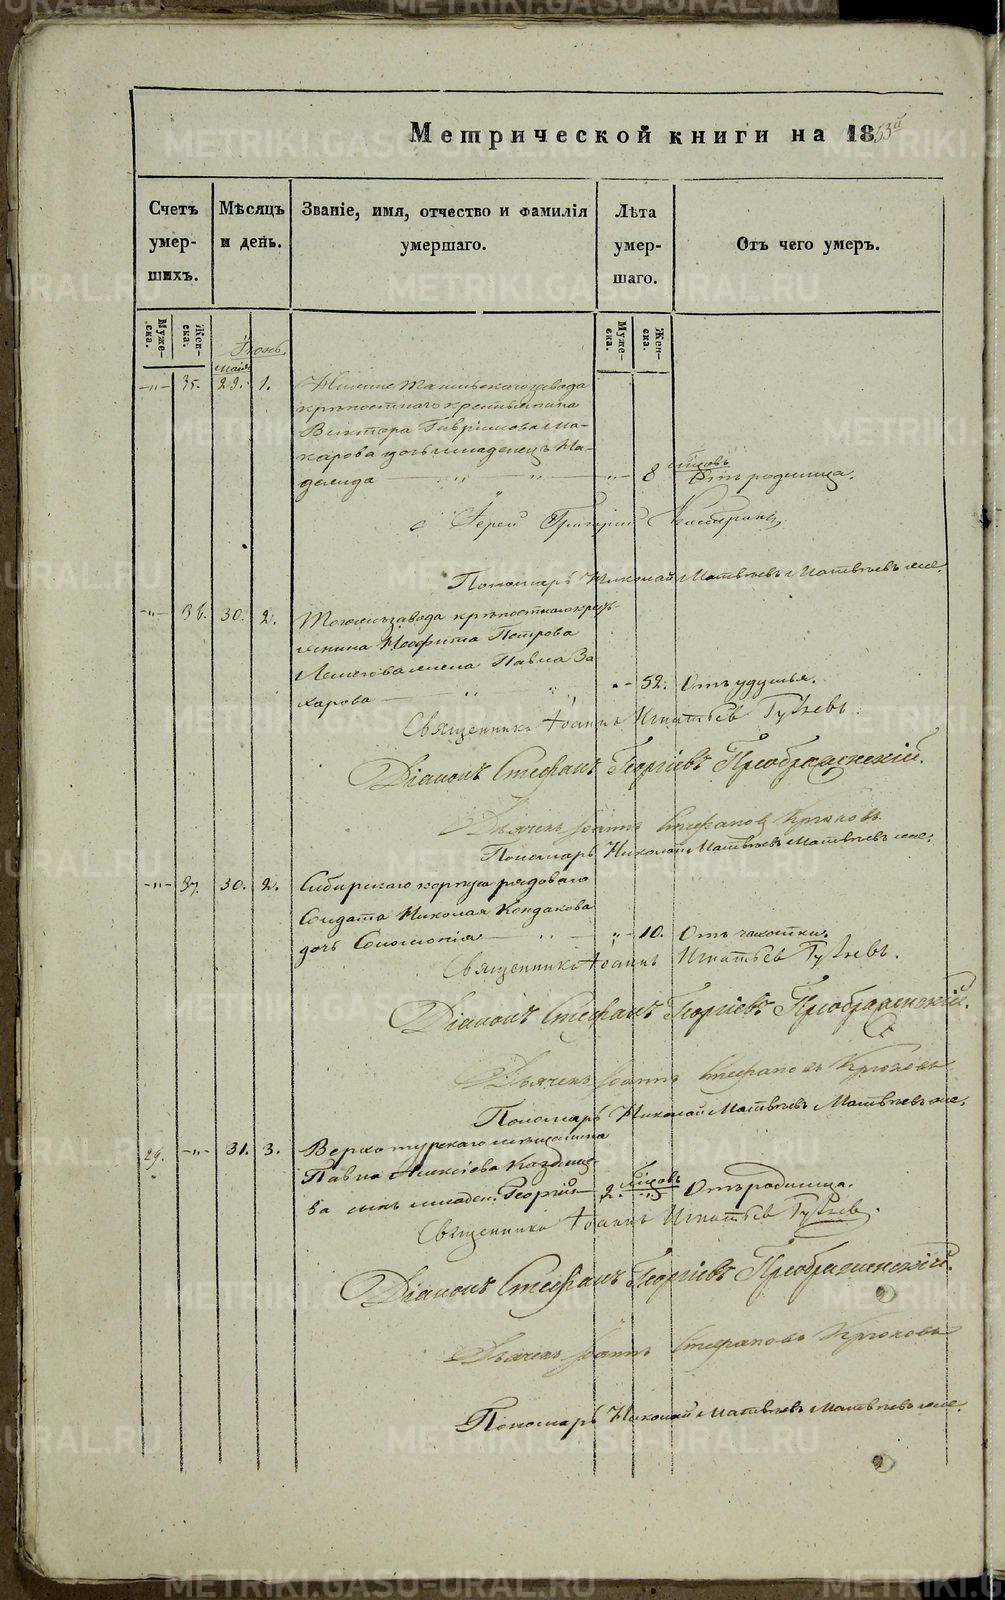 Метрической книги на 1853й
Счетъ умер-шихъ.
Мѣсяцъ и день.
Званіе, имя, отчество и фамилія умершаго.
Лѣта умер-шаго.
Отъ чего умеръ.
Муже-ска.
Жен-ска.
Муже-ска.
Жен-ска.
Маія
Іюнь
-"- 35. 29. 1.
завода
крѣпостнаго крестьянина
Виктора Гаврилова Ма-
карова дочь младенецъ Ма-
" 8 мѣсяцовъ Отъ родимца.
Іерей Григорій
Пономарь Николай Матвѣевъ Матвѣевъ
-"- 36. 30. 2. Тогожъ завода крѣпостнаго кресть-
янина Неофита Петрова
жена Павла За
харова " " "- 52. Отъ удушья.
Священникъ Іоаннъ Игнатьев
Діаконъ Стефанъ Георгіевъ Преображенскій.
Дьячекъ Іоаннъ Стефановъ Крюковъ
Пономарь Николай Матвѣевъ Матвѣевъ
-"- 37. 30. 2. Сибирскаго корпуса рядоваго
Солдата Николая Кондакова
дочь Соломонія " "- 10. Отъ чахотки.
Священникъ Іоаннъ Игнатьев
Діаконъ Стефанъ Георгіевъ Преображенскій.
Дьячекъ Іоаннъ Стефановъ Крюковъ
Пономарь Николай Матвѣевъ Матвѣевъ
29. -"- 31. 3. Верхотурскаго мѣщанина
Павла Алексіева
ва сынъ младен. Георгій 2. мѣсяцовъ " Отъ родимца.
Священникъ Іоаннъ Игнатьев
Діаконъ Стефанъ Георгіевъ Преображенскій.
Дьячекъ Іоаннъ Стефановъ Крюковъ
Пономарь Николай Матвѣевъ Матвѣевъ
METRIKI.GASO-URAL.RU